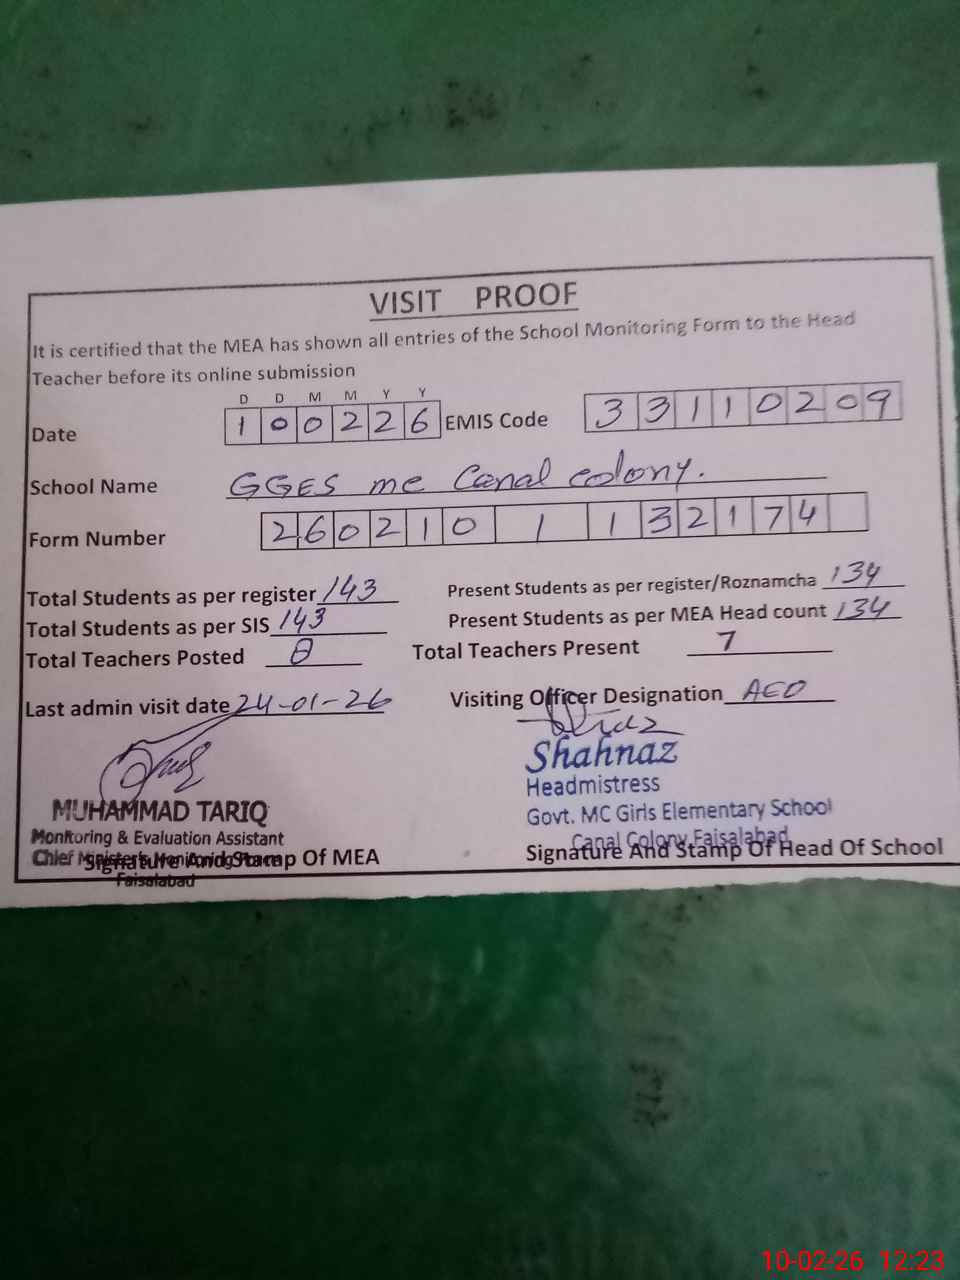 VISIT PROOF
It is certified that the MEA has shown all entries of the School Monitoring Form to the Head
Teacher before its online submission
D D M M Y Y
Date 1 0 0 2 2 6 EMIS Code 3 3 1 1 0 2 0 9
School Name GGES mc Canal colony.
Form Number 2 6 0 2 1 0 1 1 3 2 1 7 4
Total Students as per register 143 Present Students as per register/Roznamcha 134
Total Students as per SIS 143 Present Students as per MEA Head count 134
Total Teachers Posted 8 Total Teachers Present 7
Last admin visit date 24-01-26 Visiting Officer Designation AEO
MUHAMMAD TARIQ
Monitoring & Evaluation Assistant
Chief Minister's Monitoring Force
Faisalabad
Signature And Stamp Of MEA
Shahnaz
Headmistress
Govt. MC Girls Elementary School
Canal Colony, Faisalabad
Signature And Stamp Of Head Of School
10-02-26 12:23